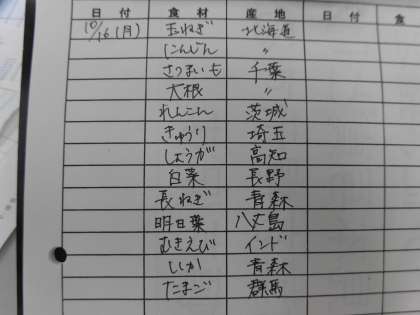 日付 食材 産地 日付 食
10/16(月) 玉ねぎ 北海道
にんじん 〃
さつまいも 千葉
大根 〃
れんこん 茨城
きゅうり 埼玉
しょうが 高知
白菜 長野
長ねぎ 青森
明日葉 八丈島
むきえび インド
いか 青森
たまご 群馬